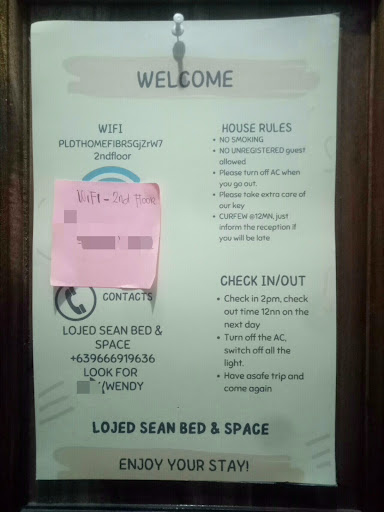 WELCOME
WIFI
PLDTHOMEFIBR5GjZrW7
2ndfloor
WIFI - 2nd Floor
CONTACTS
LOJED SEAN BED &
SPACE
+639666919636
LOOK FOR
/WENDY
HOUSE RULES
• NO SMOKING
• NO UNREGISTERED guest
allowed
• Please turn off AC when
you go out.
• Please take extra care of
our key
• CURFEW @12MN, just
inform the reception if
you will be late
CHECK IN/OUT
• Check in 2pm, check
out time 12nn on the
next day
• Turn off the AC,
switch off all the
light.
• Have asafe trip and
come again
LOJED SEAN BED & SPACE
ENJOY YOUR STAY!